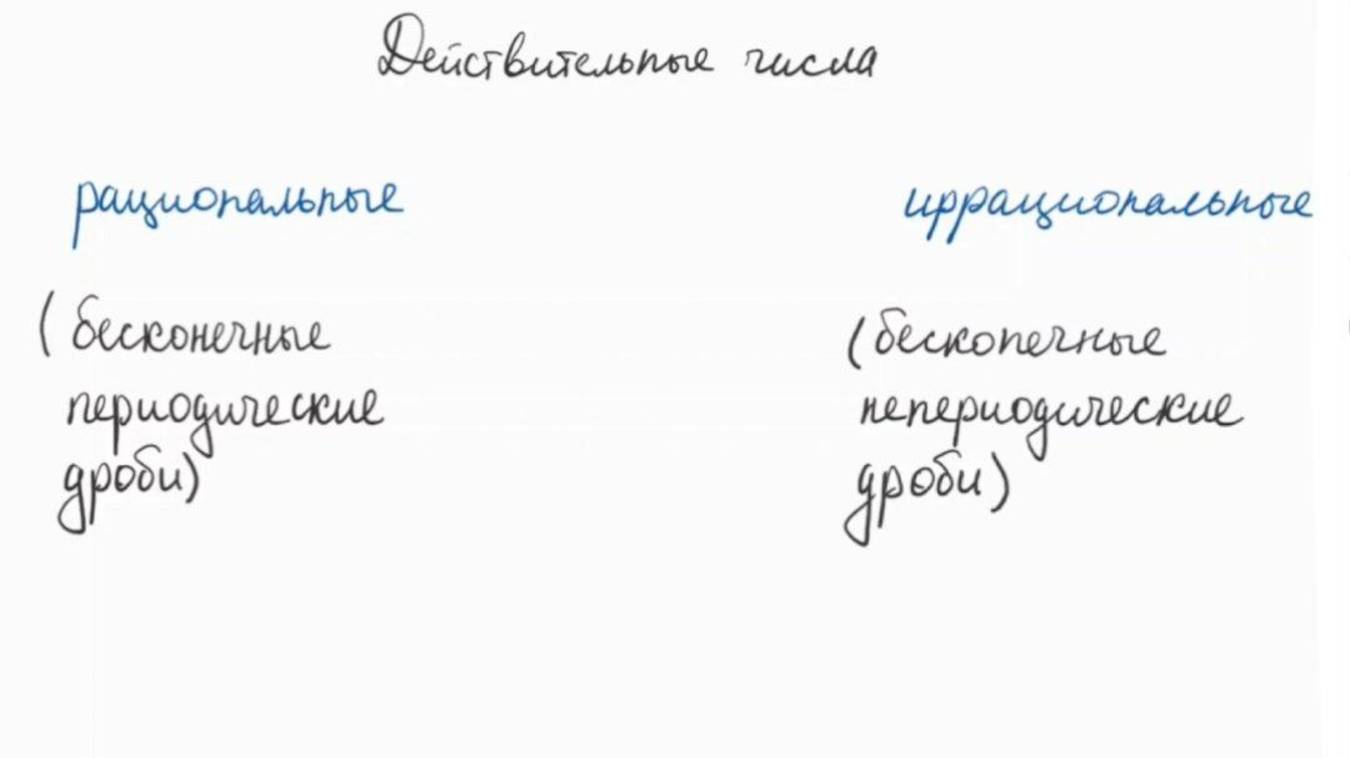 Действительные числа
рациональные
иррациональные
(бесконечные
периодические
дроби)
(бесконечные
непериодические
дроби)